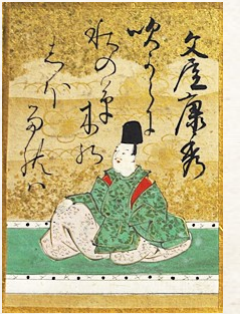 文屋康秀
吹からに
秋の草木の
しほるれハ